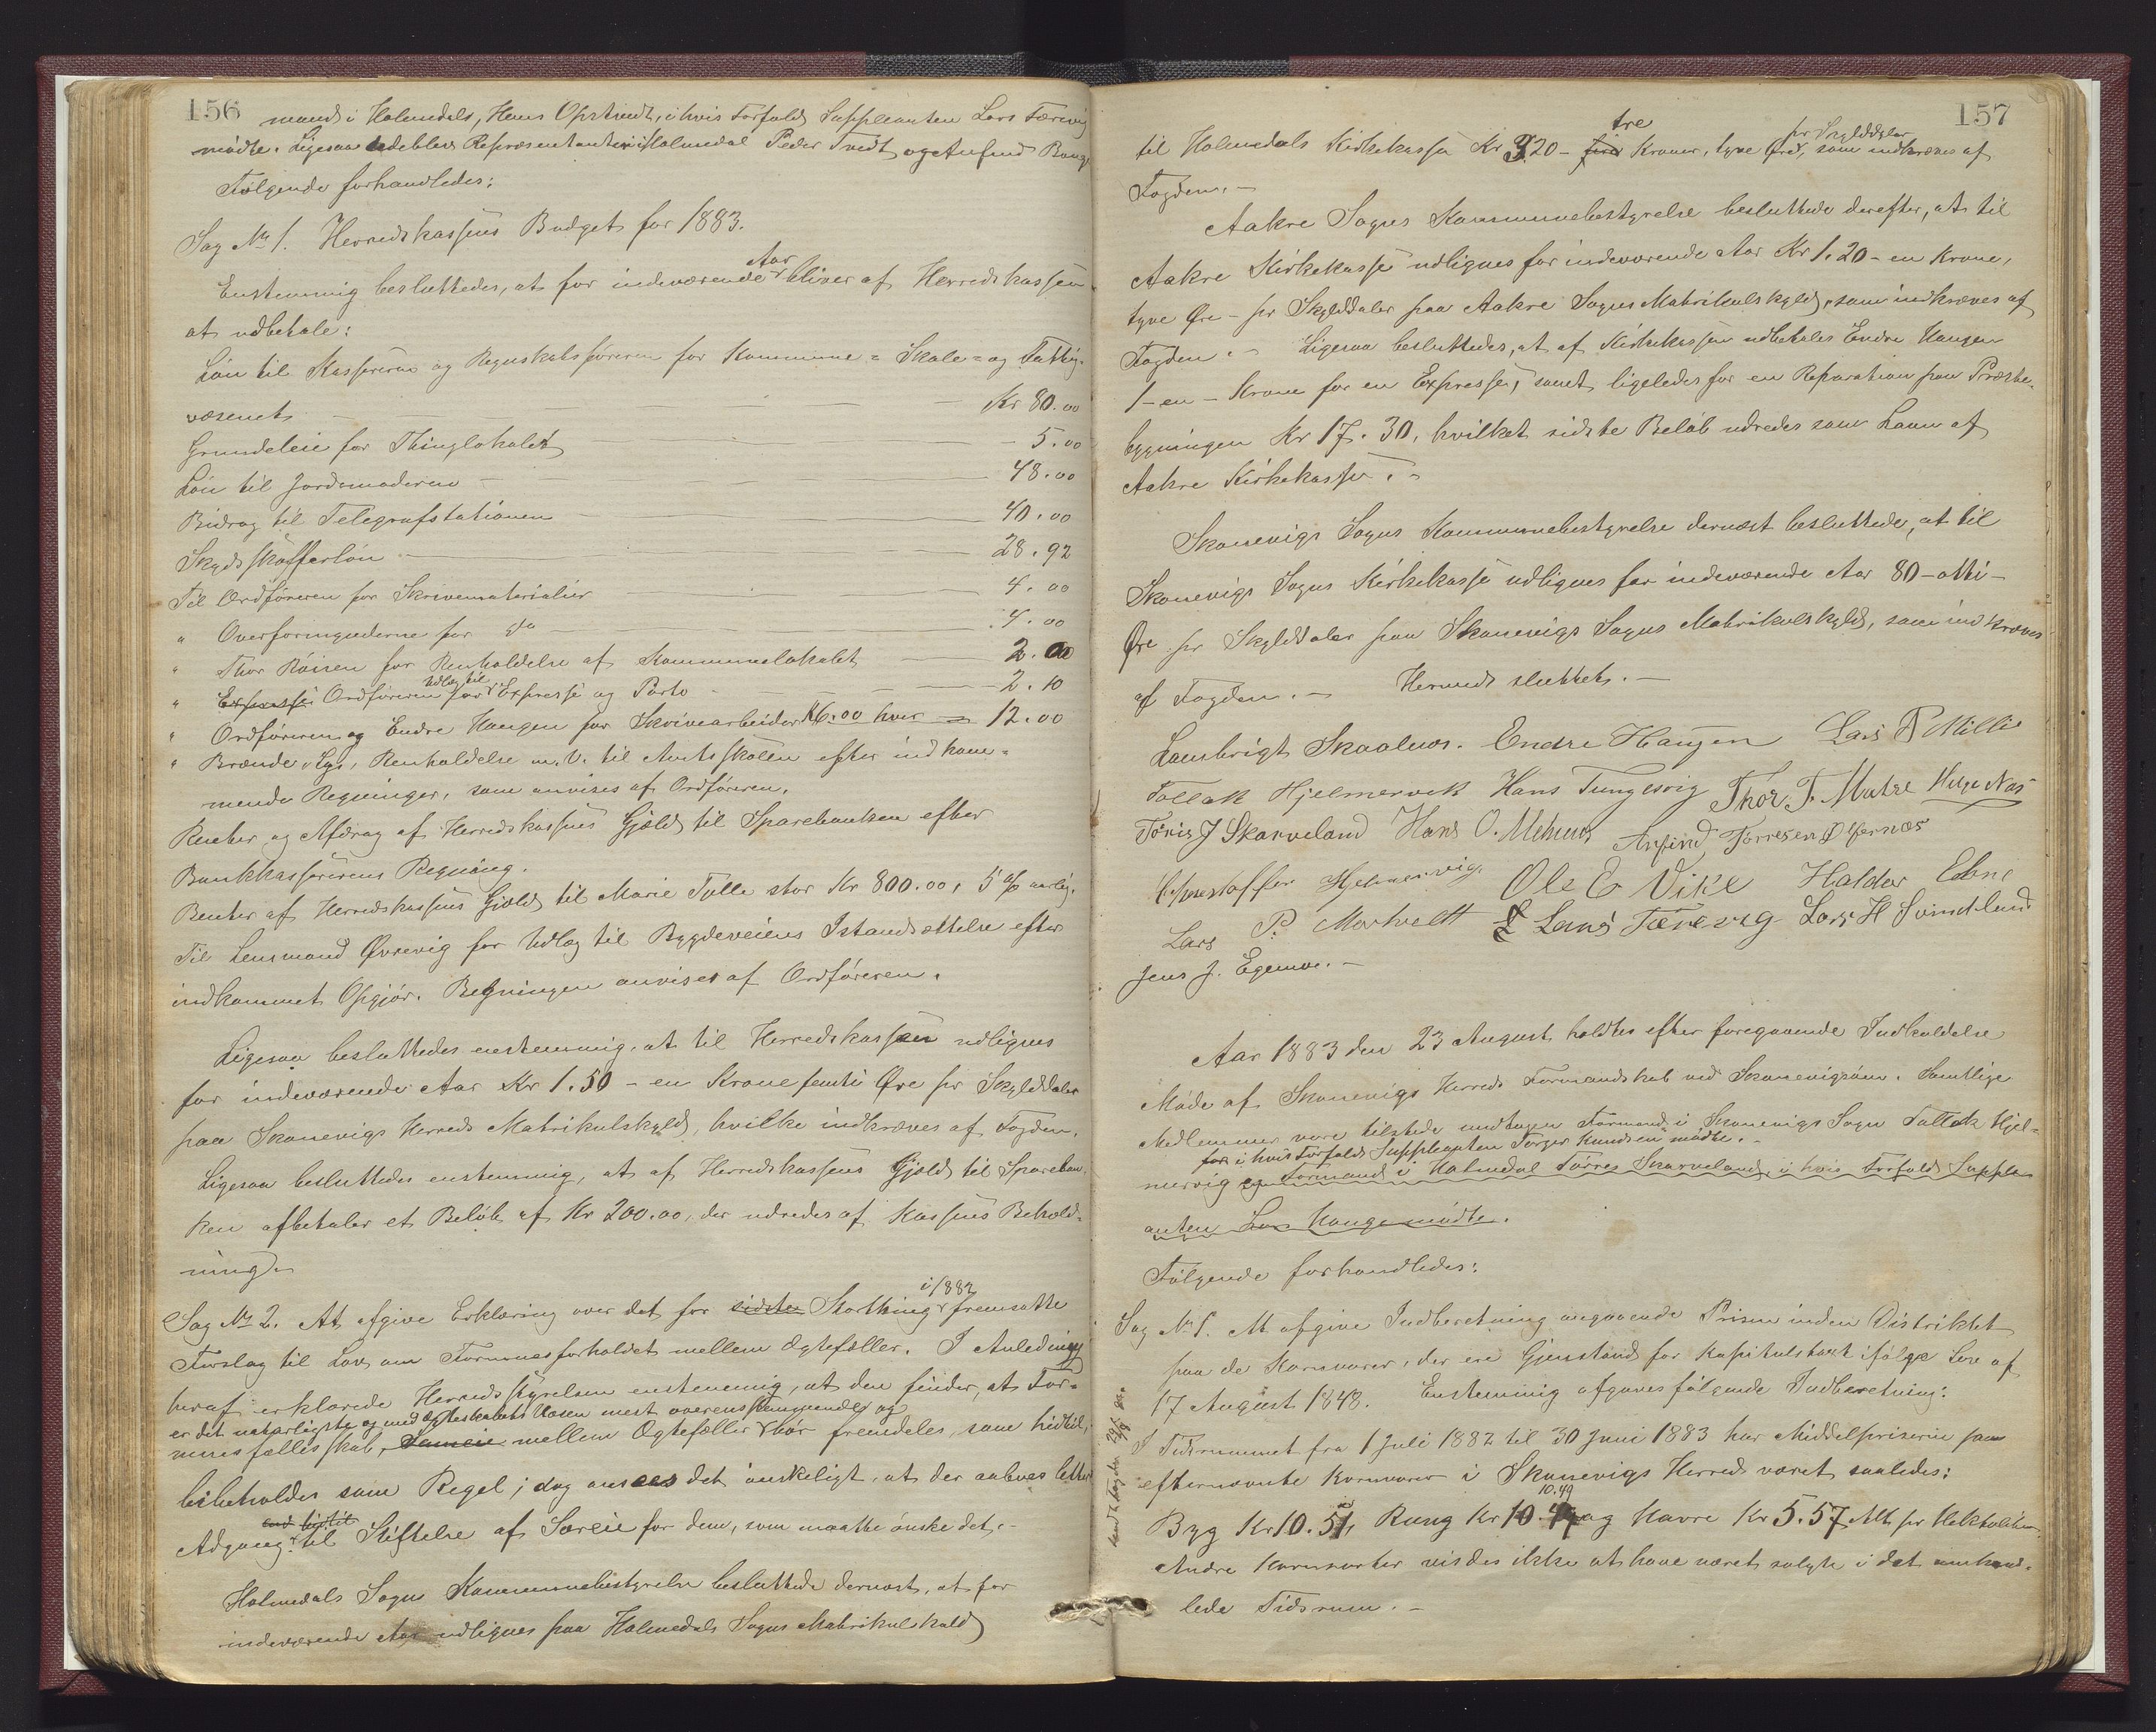 156
mand i Holmedal, Hans Opstvedt, i hvis Forfald Suppleanten Lars Tærevig
mødte. Ligesaa udeblev Repræsentanterne i Holmedal Peder Tvedt og Anfind Bauge
Følgende forhandledes:
Sag No 1. Herredskassens Budget for 1883.
Enstemmig besluttedes, at for indeværende Aar bliver af Herredskassen
at udbetale:
Løn til Kassereren og Regnskabsføreren for Kommune- Skole- og Fattig-
væsenet Kr 80.00
Grundeleie for Thinglokalet 5.00
Løn til Jordemoderen 48.00
Bidrag til Telegrafstationen 40.00
Skydsskafferløn 28.92
Til Ordføreren for Skrivematerialier 4.00
" Overformynderne for do 4.00
" Thor Røisen for Renholdelse af Kommunelokalet 2.00
" Expresse Ordføreren for Udlæg til Expresse og Porto 2.10
" Ordføreren og Endre Haugen for Skrivearbeider Kr 6.00 hver 12.00
" Brænde, Lys, Renholdelse m. V. til Amtsskolen efter indkom-
mende Regninger, som anvises af Ordføreren.
Renter og Afdrag af Herredskassens Gjæld til Sparebanken efter
Bankkassererens Regning.
Renter af Herredskassens Gjæld til Marie Tylle stor Kr 800.00, 5 % aarlig.
Til Lensmand Øvrevig for Udlæg til Bygdeveiens Istandsættelse efter
indkommet Opgjør. Regningen anvises af Ordføreren.
Ligesaa besluttedes enstemmig, at til Herredskassen udlignes
for indeværende Aar Kr 1.50 - en Krone femti Øre pr Skylddaler
paa Skonevigs Herreds Matrikulskyld, hvilke indkræves af Fogden.
Ligesaa besluttedes enstemmig, at af Herredskassens Gjæld til Spareban-
ken afbetales et Beløb af Kr 200.00, der udredes af Kassens Behold-
ning.
Sag No 2. At afgive Erklæring over det for sidste Storthing i 1882 fremsatte
Forslag til Lov om Formuesforholdet mellem Ægtefæller. I Anledning
heraf erklærede Herredsstyrelsen enstemmig, at den finder, at For-
er det naturligste og med Ægteskabets Væsen mest overensstemmende og
muesfællesskab, Sameie mellem Ægtefæller bør fremdeles, som hidtil,
bibeholdes som Regel; dog ansees det ønskeligt, at der aabnes lettere
end hidtil
Adgang til Stiftelse af Særeie for dem, som maatte ønske det.-
Holmedals Sogns Kommunebestyrelse besluttede dernæst, at for
indeværende Aar udlignes paa Holmedals Sogns Matrikulskyld
157
til Holmedals Kirkekasse Kr 3.20 - fire tre Kroner, tyve Øre pr Skylddaler, som indkræves af
Fogden.-
Aakre Sogns Kommunebestyrelse besluttede derefter, at til
Aakre Kirkekasse udlignes for indeværende Aar Kr 1.20 - en Krone,
tyve Øre - pr Skylddaler paa Aakre Sogns Matrikulskyld, som indkræves af
Fogden.- Ligesaa besluttedes, at af Kirkekassen udbetales Endre Haugen
1 - en - Krone for en Expresse, samt ligeledes for en Reparation paa Præste-
bygningen Kr 17.30, hvilket sidste Beløb udredes som Laan af
Aakre Kirkekasse.-
Skonevigs Sogns Kommunebestyrelse dernæst besluttede, at til
Skonevigs Sogns Kirkekasse udlignes for indeværende Aar 80 - otti -
Øre pr Skylddaler paa Skonevigs Sogns Matrikulskyld, som indkræves
af Fogden.- Hermed sluttet.-
Lambrigt Skaalnes. Endre Haugen Lars T Millie
Tollak Hjelmervik Hans Tungesvig Thor T. Matre Helge Næs
Tøris J Skarveland Hans O. Mehus, Anfind Torresen Ølfernæs
Christoffer Hjelmervig. Ole E Vike Haldor Ebne
Lars P. Mortvedt Lars Tærevig Lars H Svindland
Jens J. Egenæs.-
Aar 1883 den 23 August holdtes efter foregaaende Indkaldelse
Møde af Skonevigs Herreds Formandskab ved Skonevigsøen. Samtlige
Medlemmer vare tilstede undtagen Formand i Skonevigs Sogn Tollak Hjel-
for i hvis Forfald Suppleanten Torger Knudsen mødte.-
mervig og Formand i Holmedal Tørres Skarveland, i hvis Forfald Supple-
anten Lars Hauge mødte.
Følgende forhandledes:
Sag No 1. At afgive Indberetning angaaende Prisen inden Distriktet
paa de Kornvarer, der ere Gjenstand for Kapitulstaxt ifølge Lov af
17 August 1848. Enstemmig afgaves følgende Indberetning:
I Tidsrummet fra 1 Juli 1882 til 30 Juni 1883 har Middelpriserne paa
efternævnte Kornvarer i Skonevigs Herred været saaledes:
10.49
Byg Kr 10.51, Rug Kr 10.49 og Havre Kr 5.57 Alt pr Hektoliter.
Andre Kornsorter vides ikke at have været solgte i det omhand-
lede Tidsrum.-